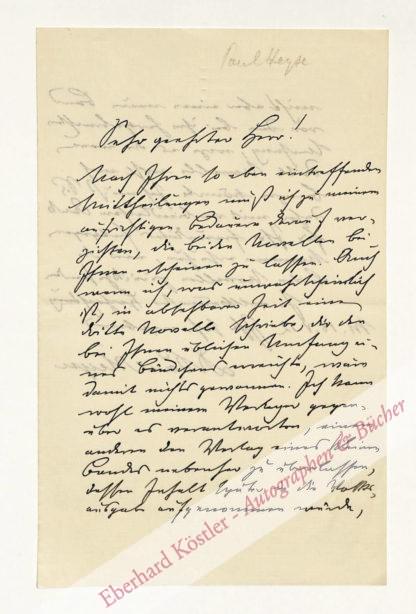 Paul Heyse
Sehr geehrter Herr!
Nach Ihren so eben eintreffenden
Mittheilungen muß ich zu meinem
aufrichtigen Bedauern darauf ver-
zichten, die beiden Novellen bei
Ihnen erscheinen zu lassen. Auch
wenn ich, was unwahrscheinlich
ist, in absehbarer Zeit eine
dritte Novelle schriebe, die den
bei Ihnen üblichen Umfang ei-
nes Bändchens erreichte, wäre
damit nichts gewonnen. Ich kann
wohl meinem Verleger gegen-
über es verantworten, einem
anderen den Verlag eines kleinen
Bandes nebenher zu überlassen,
dessen Inhalt später in die
ausgabe aufgenommen würde,
Eberhard Köstler - Autographen & Bücher